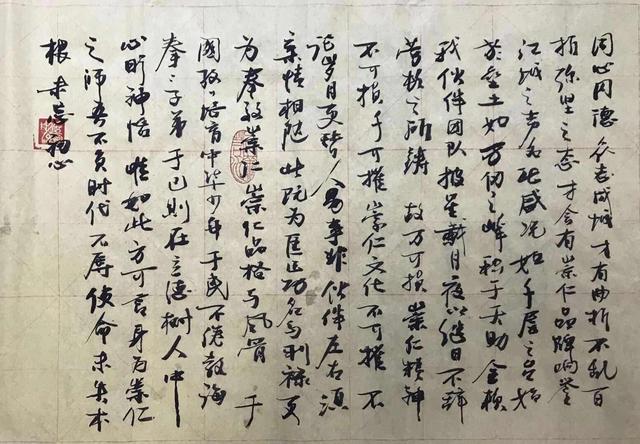 同心同德众志成城才有曲折不乱百
折弥坚之态才会有崇仁品牌响誉
江城之吉名此盛况如千层之台始
於垒土如万仞之峰积于天助全赖
我伙伴团队披星戴月夜以继日不辞
劳极之所铸 故万可损崇仁精神
不可损千可摧崇仁文化不可摧不
论岁月更替人易事非伙伴左右须
亲情相随此既为匡正功名与利禄更
为秦教崇仁崇仁品格与风骨 于
国孜孜培育中华少年于民不倦教诲
秦之子弟于己则在立德树人中
心旷神怡唯如此方可言身为崇仁
之师吾不负时代不辱使命未失本
根未忘初心